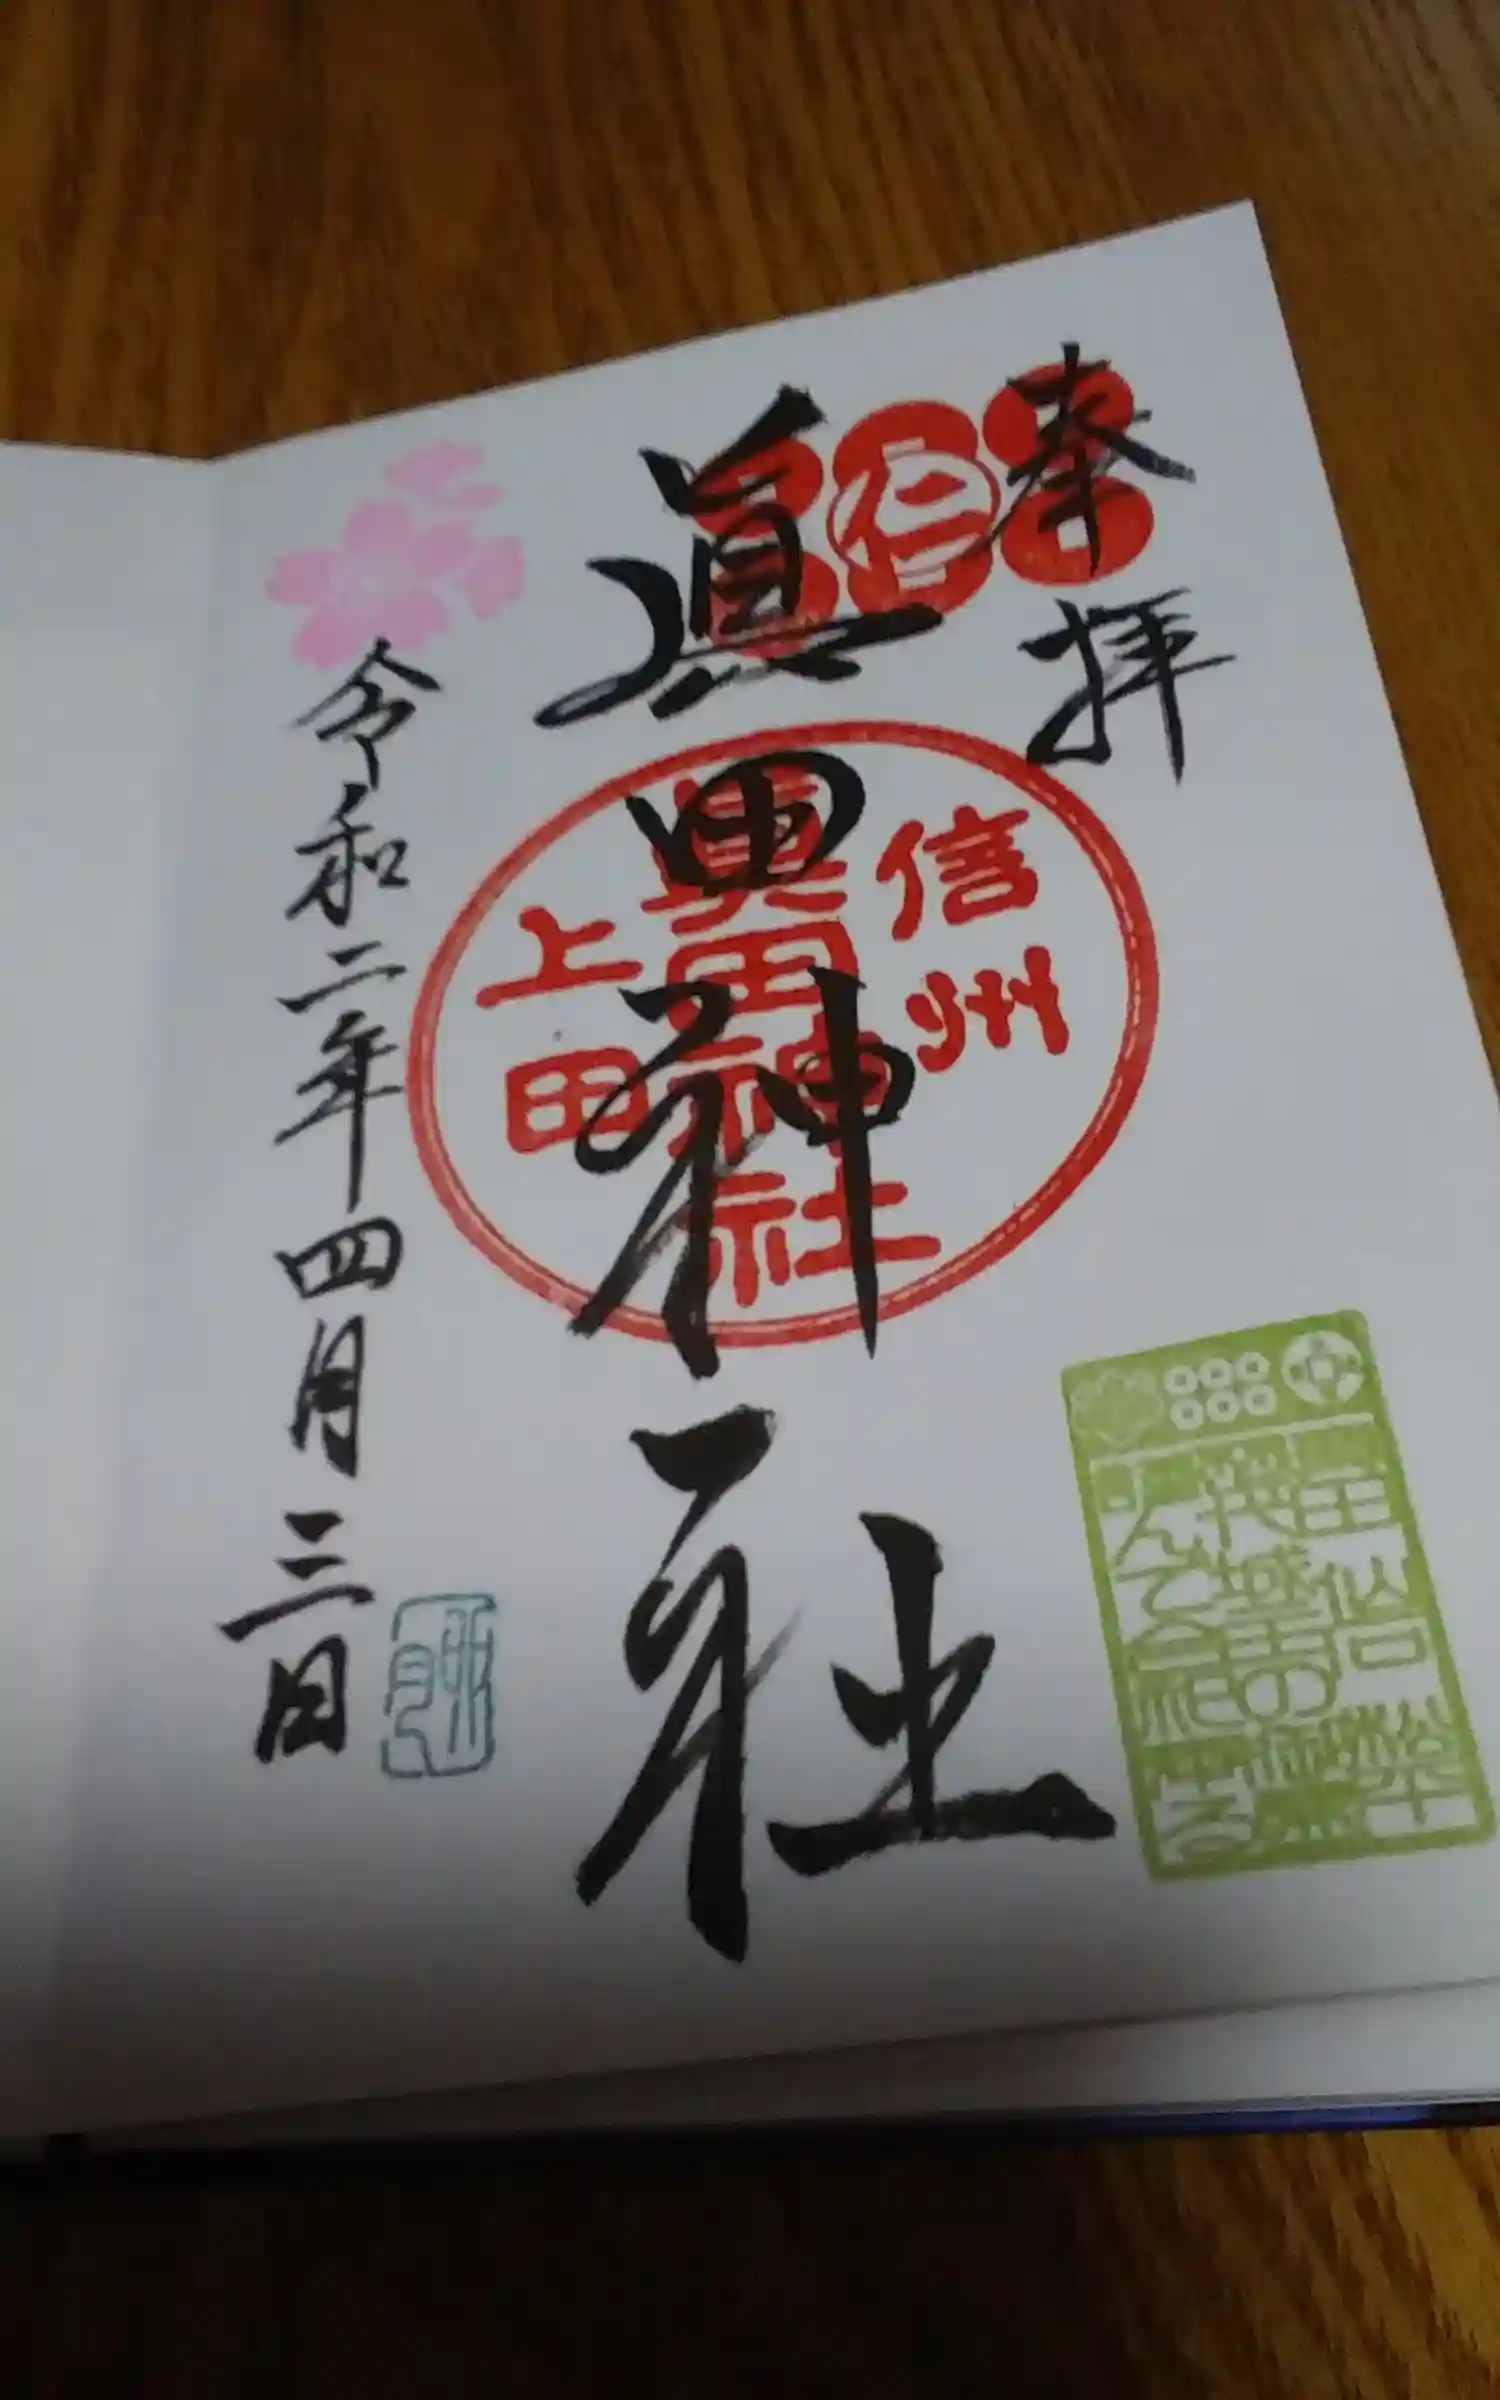 奉拝
仁
眞田神社
信州
眞田神社
上田
令和二年四月三日